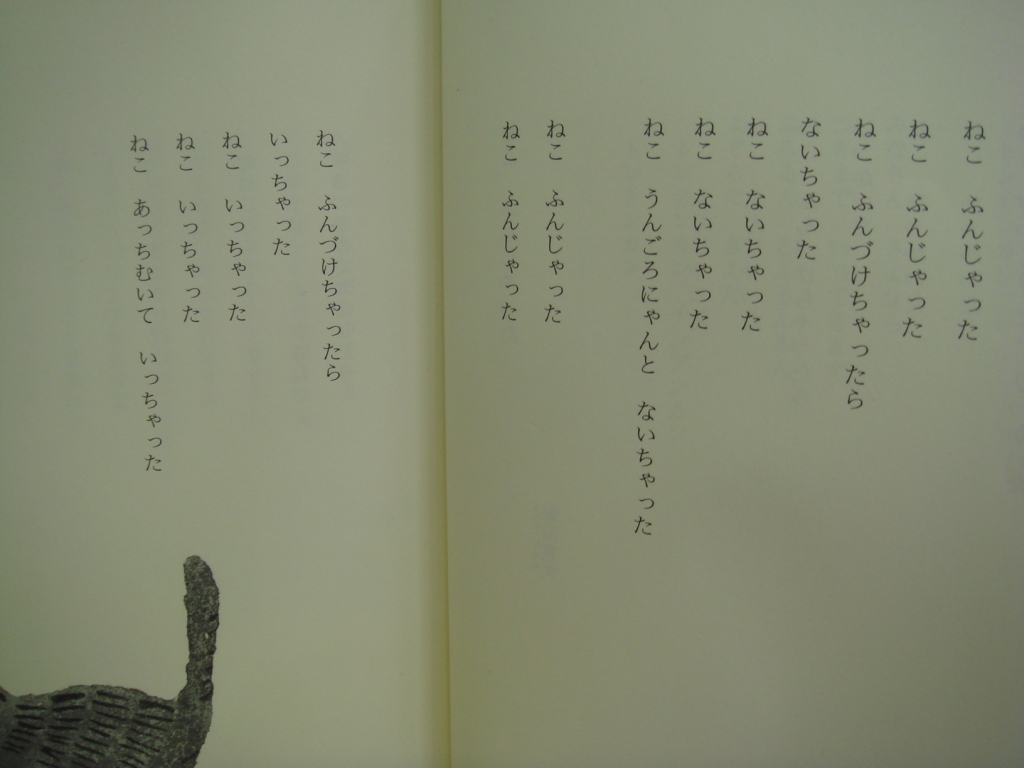 ねこ　ふんじゃった
ねこ　ふんじゃった
ねこ　ふんづけちゃったら
ないちゃった
ねこ　ないちゃった
ねこ　ないちゃった
ねこ　うんごろにゃんと　ないちゃった
ねこ　ふんじゃった
ねこ　ふんじゃった
ねこ　ふんづけちゃったら
いっちゃった
ねこ　いっちゃった
ねこ　いっちゃった
ねこ　あっちむいて　いっちゃった